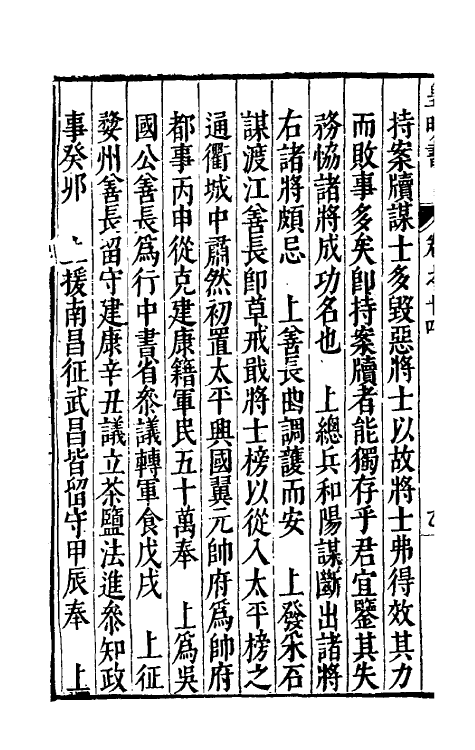 持案牘謀士多毀惡將士以故將士弗得效其力
而敗事多矣卽持案牘者能獨存乎君宜鑒其失
務恊諸將成功名也　上總兵和陽謀斷出諸將
右諸將頗忌　上善長曲調護而安　上發采石
謀渡江善長卽草戒戢將士榜以從入太平榜之
通衢城中肅然初置太平興國翼元帥府爲帥府
都事丙申從克建康籍軍民五十萬奉　上爲吳
國公善長爲行中書省叅議轉軍食戊戌　上征
婺州善長留守建康辛丑議立茶鹽法進叅知政
事癸卯　上援南昌征武昌皆留守甲辰奉　上